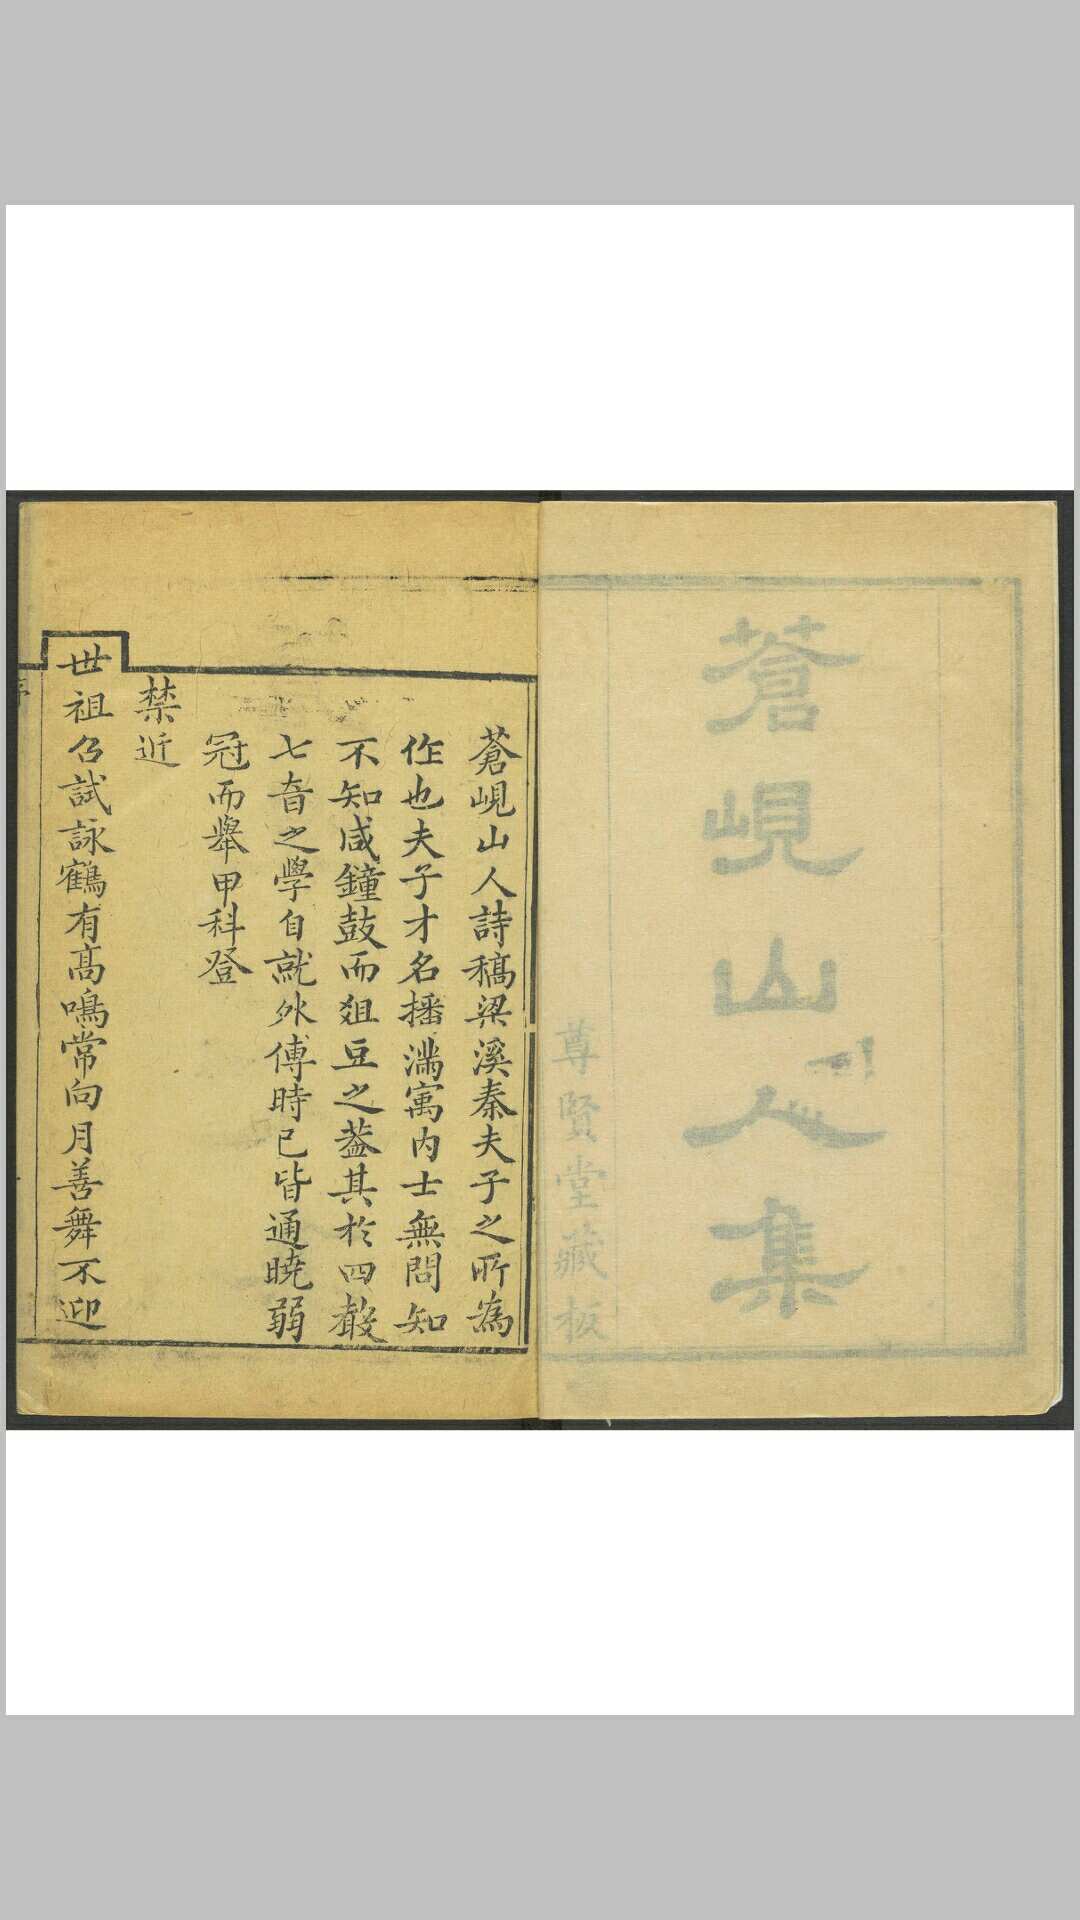 蒼峴山人集
尊賢堂藏板
蒼峴山人詩稿梁溪秦夫子之所為
作也夫子才名播滿寓内士無問知
不知咸鐘鼓而俎豆之葢其於四聲
七音之學自就外傅時已皆通曉弱
冠而舉甲科登
禁近
世祖召試詠鶴有高鳴常向月善舞不迎
序